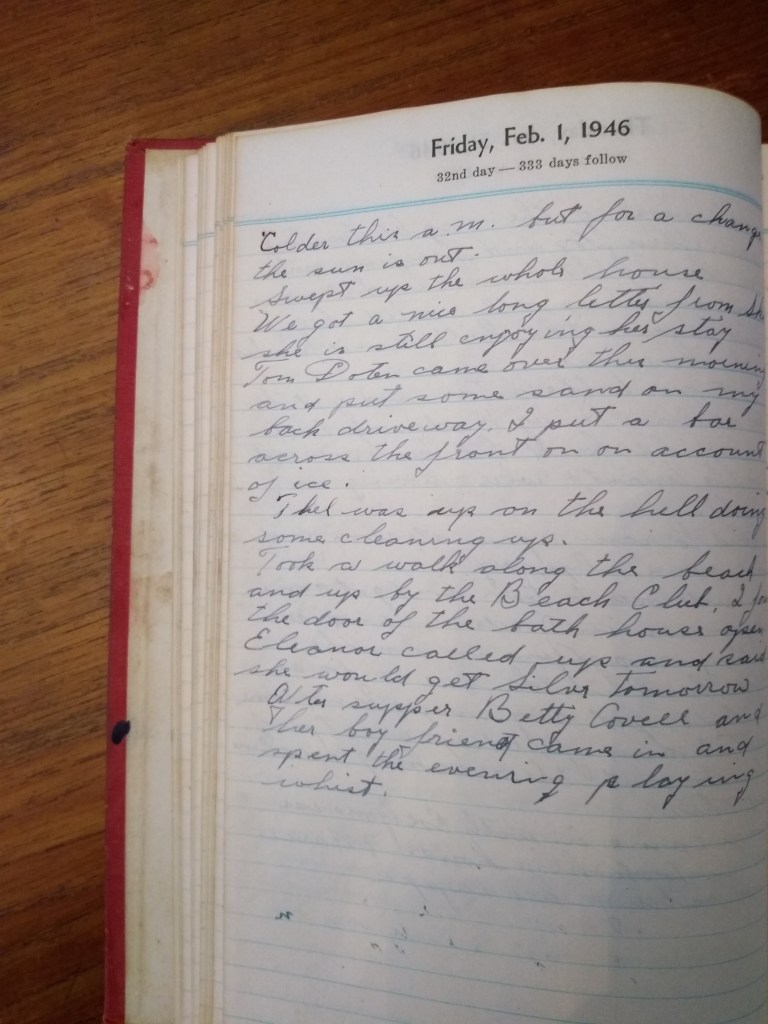 Friday, Feb. 1, 1946
32nd day — 333 days follow
Colder this a.m. but for a change
the sun is out.
Swept up the whole house
We got a nice long letter from
she is still enjoying her stay
Tom Doten came over this morning
and put some sand on my
back driveway. I put a bar
across the front on on account
of ice.
Thel was up on the hill doing
some cleaning up.
Took a walk along the beach
and up by the Beach Club. I
the door of the bath house open
Eleanor called up and said
she would get Silvr tomorrow
After supper Betty Covell and
her boy friend came in and
spent the evening playing
whist.